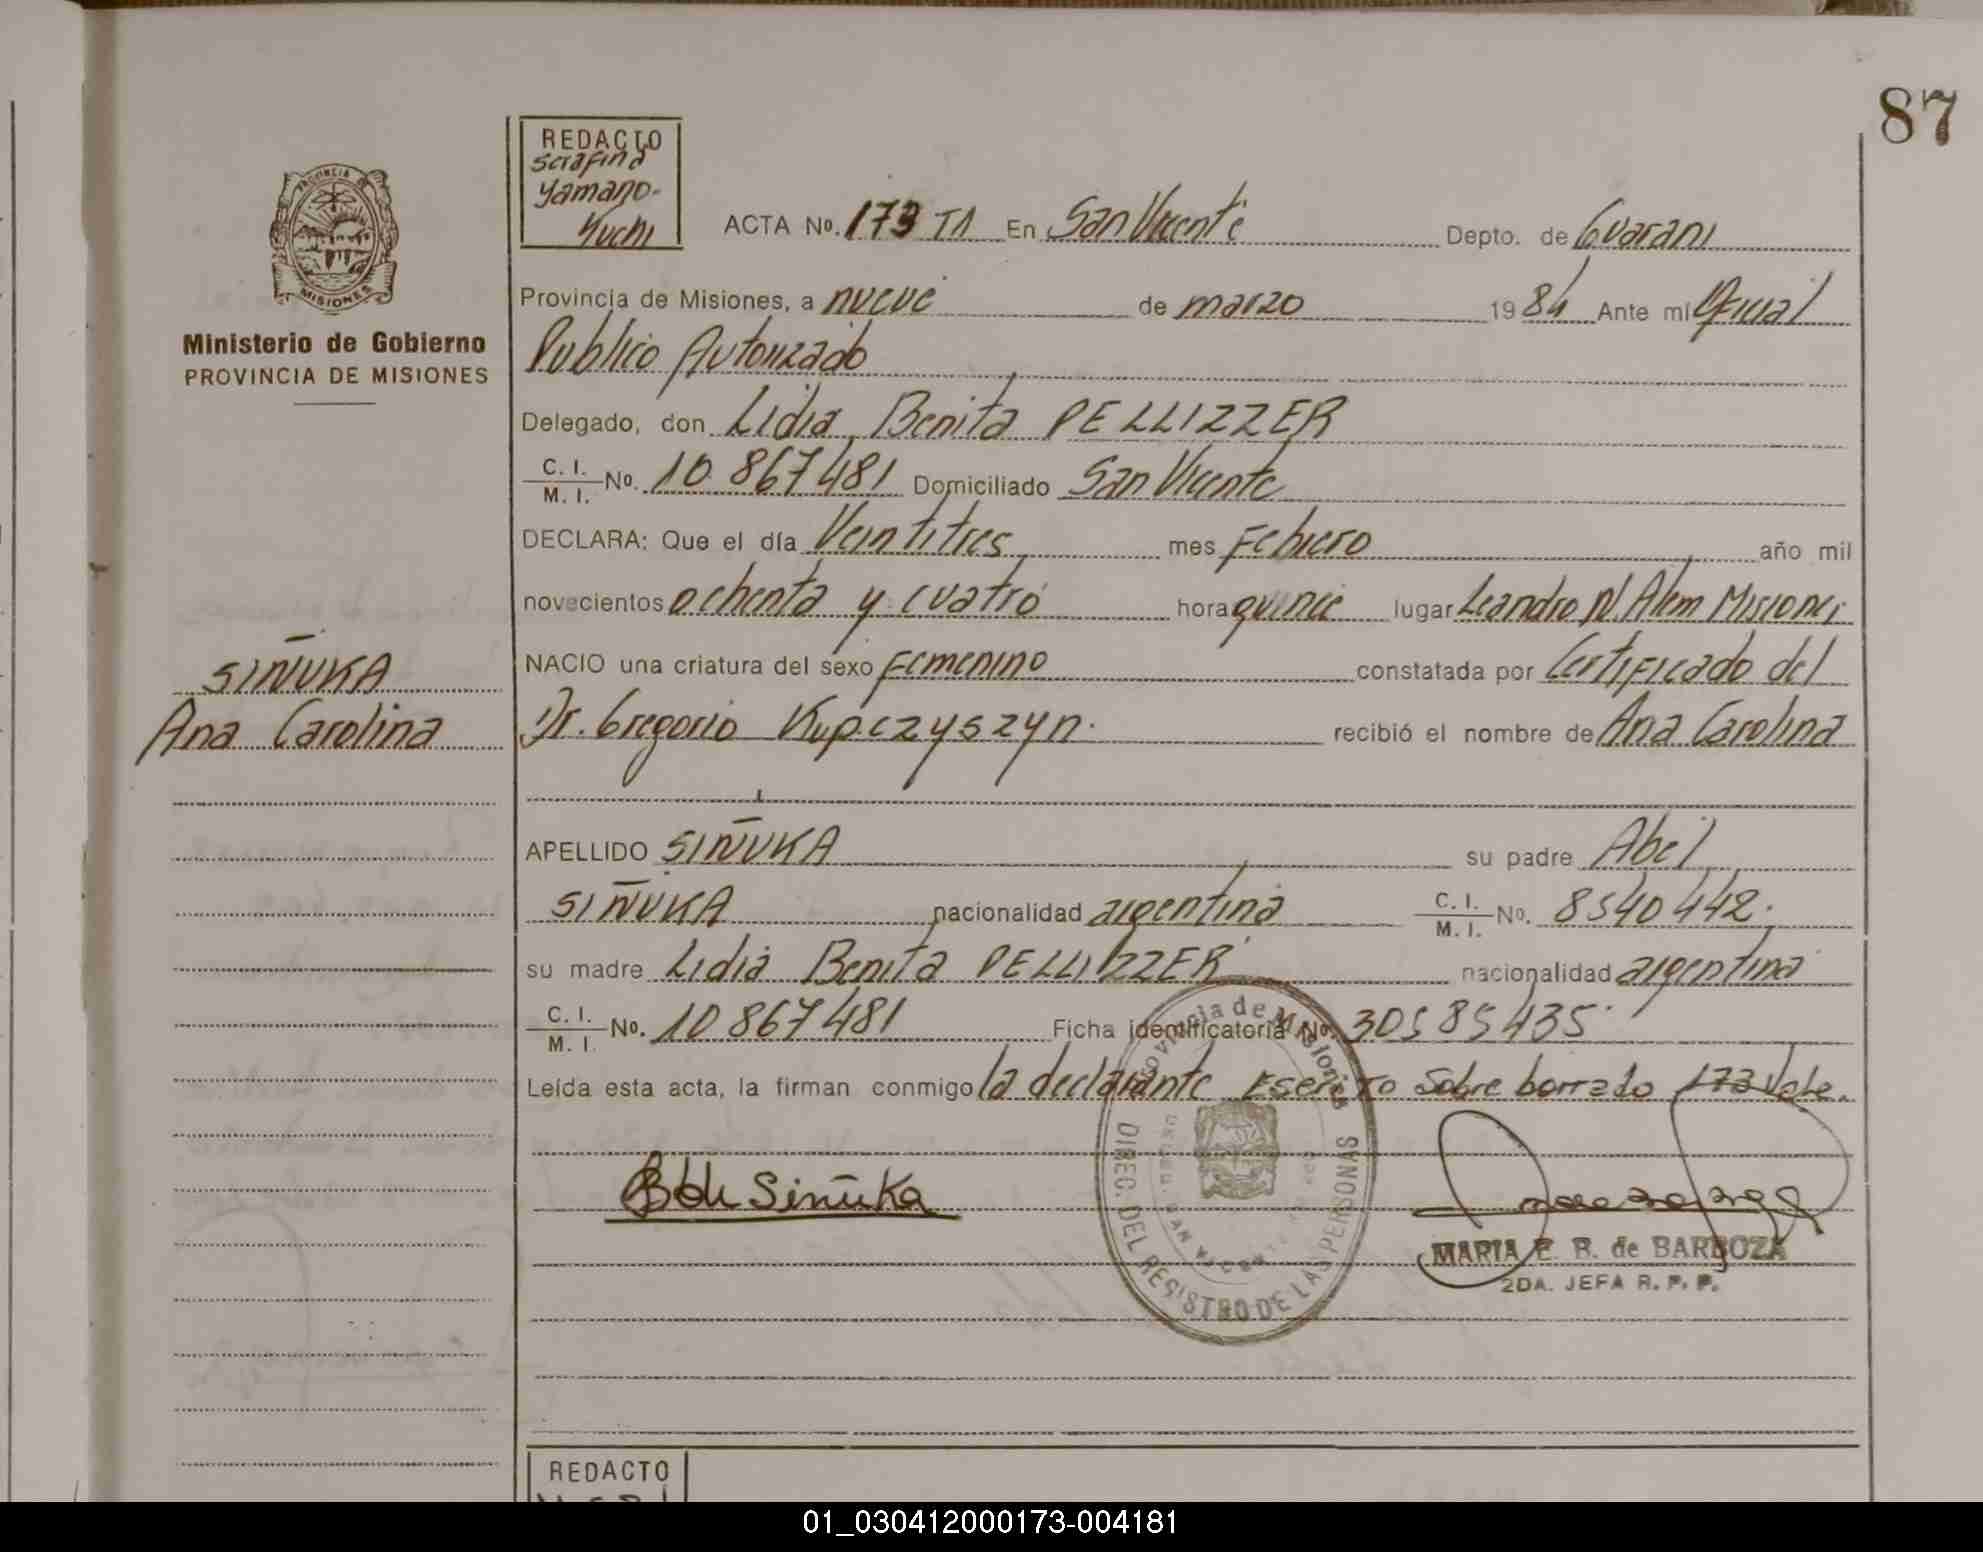 87
REDACTO
Serafina
Yamano-
Kuchi
ACTA No. 173 T1 En San Vicente Depto. de Guarani
PROVINCIA DE
MISIONES
Ministerio de Gobierno
PROVINCIA DE MISIONES
Provincia de Misiones, a nueve de marzo 1984 Ante mi Oficial
Publico Autorizado
Delegado, don Lidia Benita PELLIZZER
C. I. / M. I. No. 10 867 481 Domiciliado San Vicente
DECLARA: Que el día Veintitres mes Febrero año mil
novecientos ochenta y cuatro hora quince lugar Leandro N. Alem Misiones
NACIO una criatura del sexo Femenino constatada por Certificado del
SIÑUKA
Ana Carolina
Dr. Gregorio Kupczyszyn. recibió el nombre de Ana Carolina
APELLIDO SIÑUKA su padre Abel
SIÑUKA nacionalidad argentina C. I. / M. I. No. 8540442.
su madre Lidia Benita PELLIZZER nacionalidad argentina
C. I. / M. I. No. 10 867 481 Ficha identificatoria No. 30585435
Leída esta acta, la firman conmigo la declarante Escrito sobre borrado 173 Vale.
Provincia de Misiones
DIREC. DEL REGISTRO DE LAS PERSONAS
B de Siñuka
MARIA E. B. de BARBOZA
2DA. JEFA R. P. P.
REDACTO
01_030412000173-004181